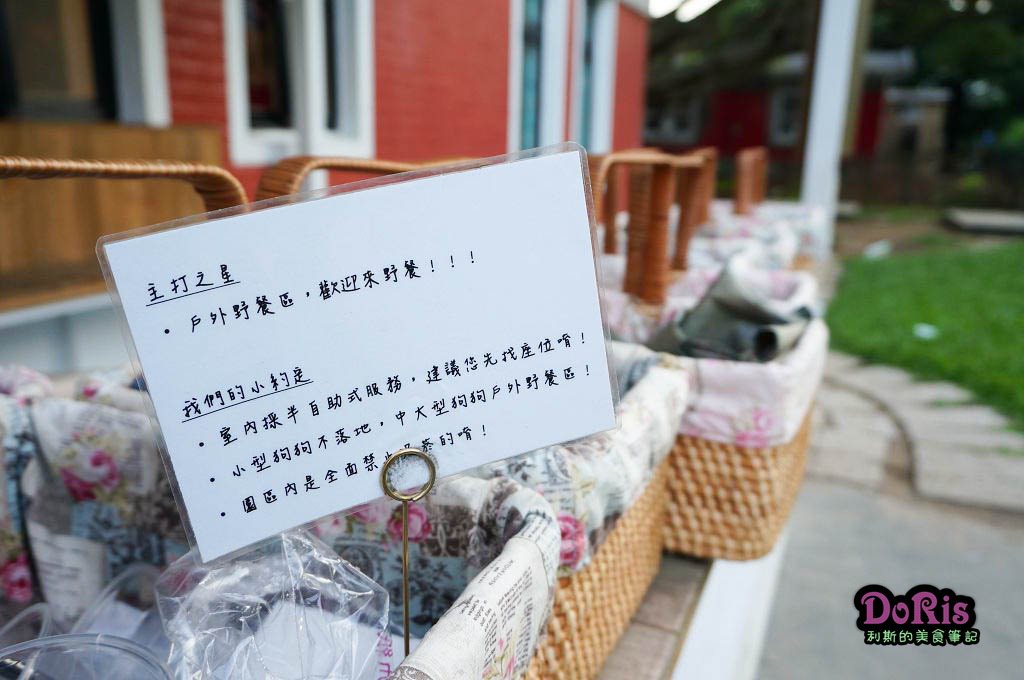 主打之星
• 戶外野餐區，歡迎來野餐！！！
我們的小約定
• 室內採半自助式服務，建議您先找座位唷！
• 小型狗狗不落地，中大型狗狗戶外野餐區！
• 園區內是全面禁止吸菸的唷！
DoRis
利斯的美食筆記